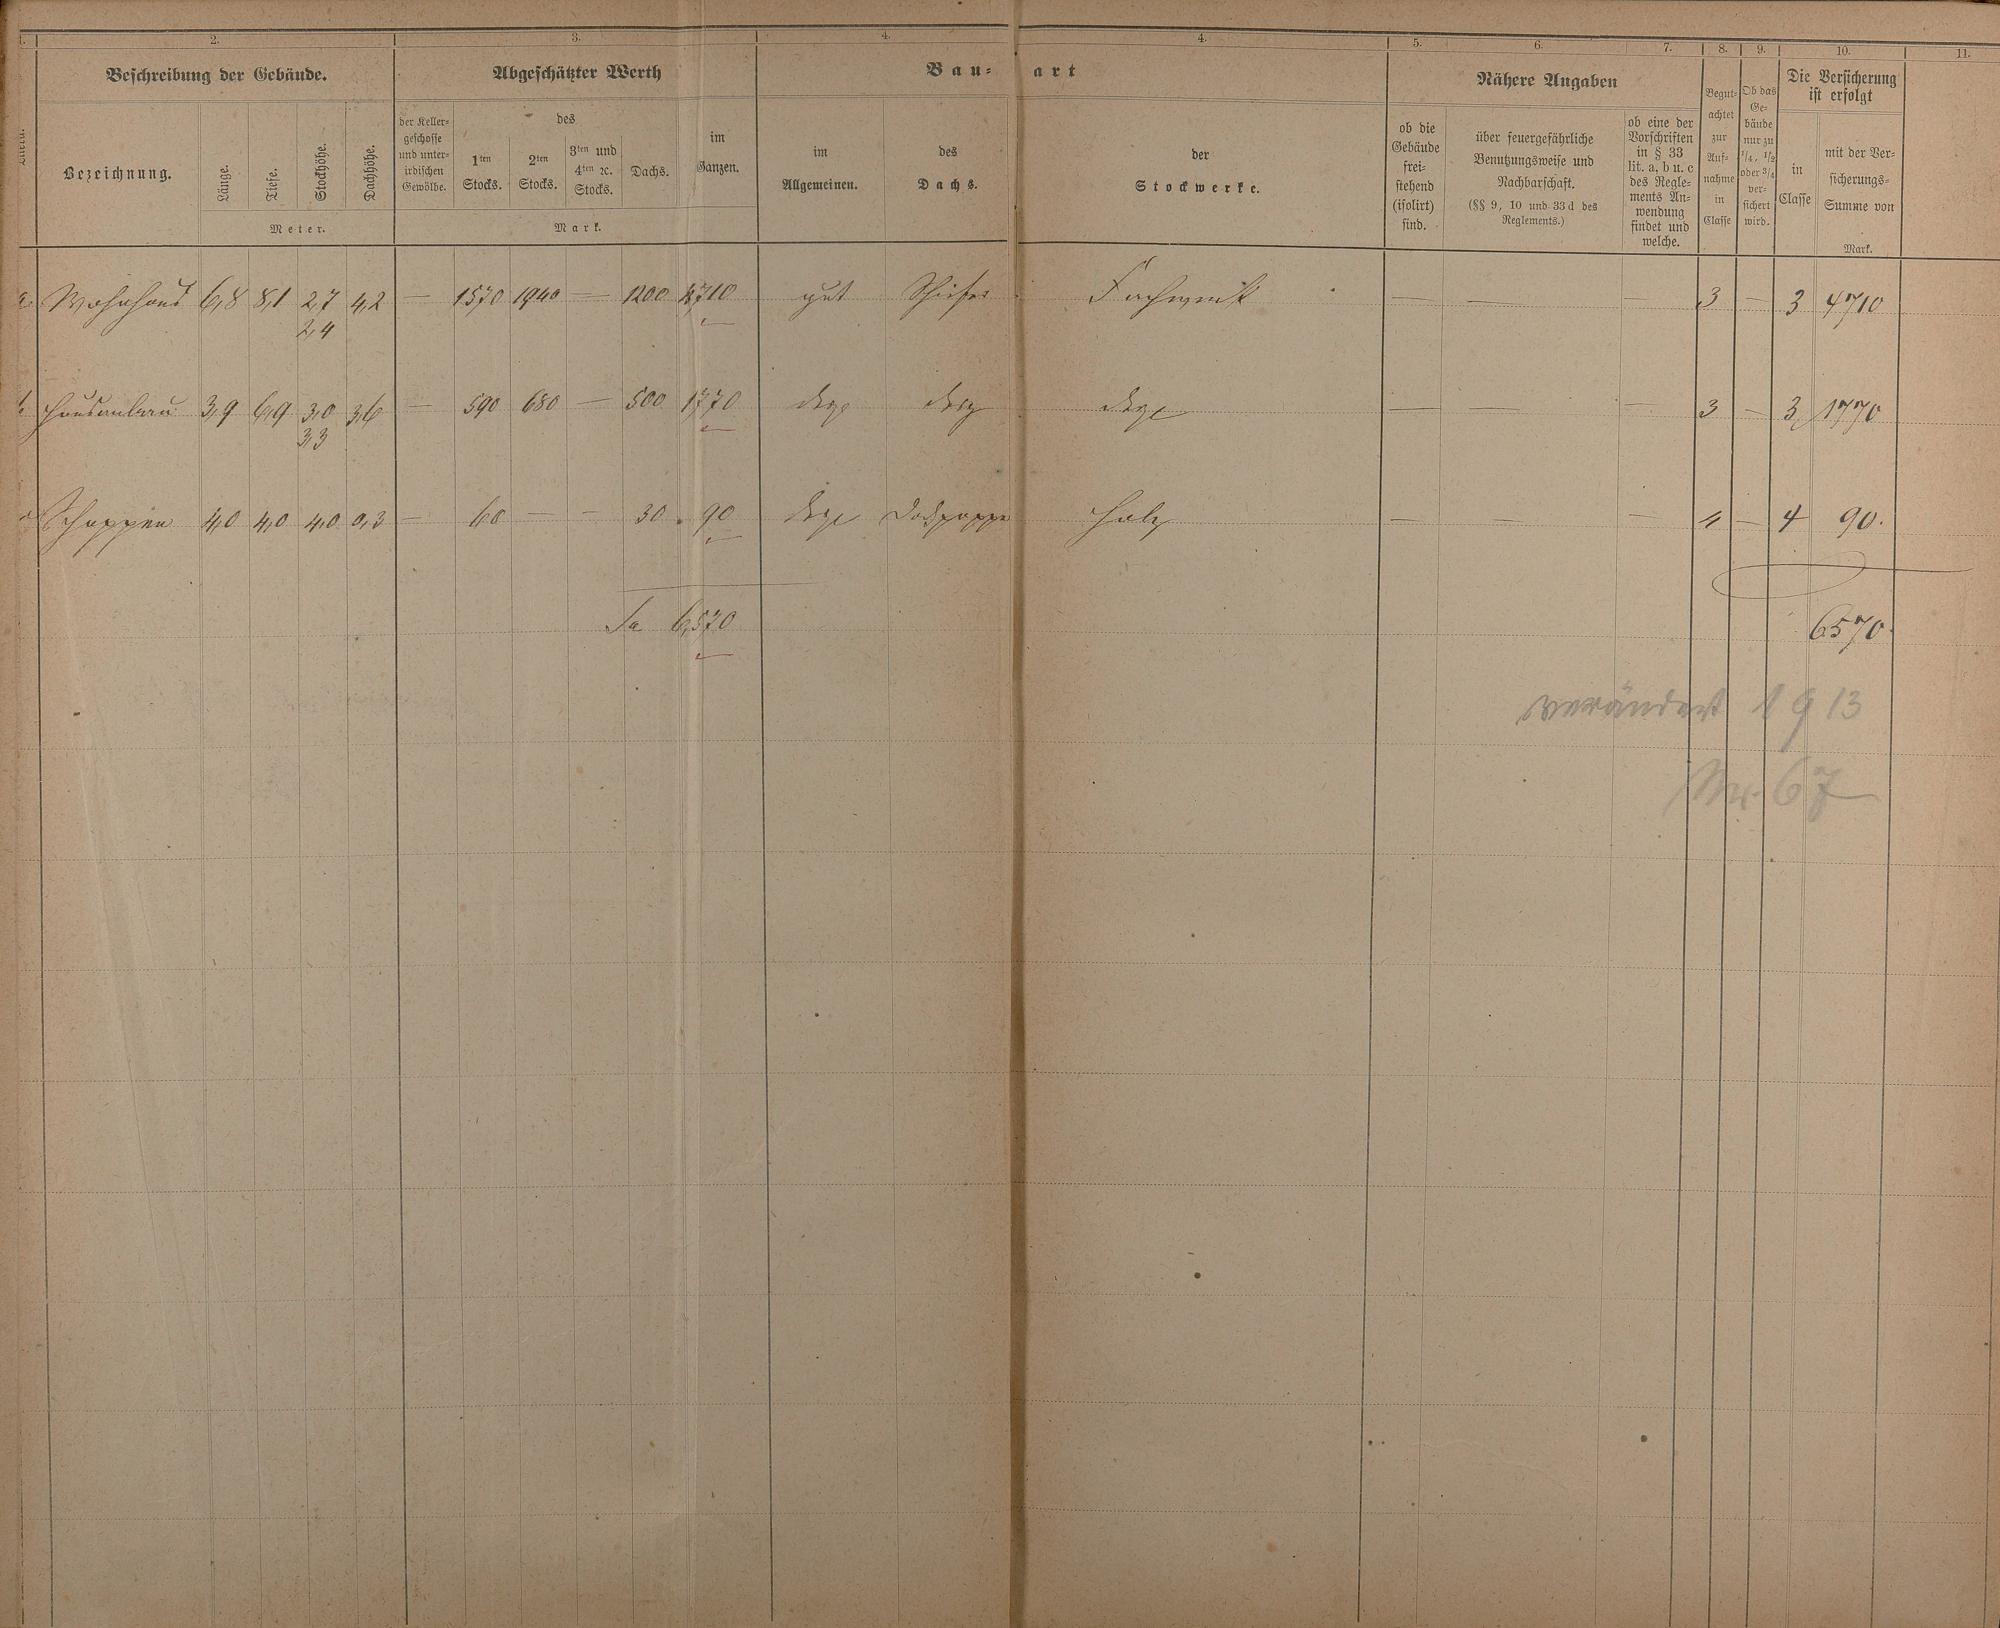 1. 2. 3. 4. 4. 5. 6. 7. 8. 9. 10. 11.
Beschreibung der Gebäude. Abgeschätzter Werth Bau- art Nähere Angaben Die Versicherung
ist erfolgt
Bezeichnung. Länge. Tiefe. Stockhöhe. Dachhöhe.
Meter.
der Keller-
geschosse
und unter-
irdischen
Gewölbe.
des
1ten
Stocks.
2ten
Stocks.
3ten und
4ten ꝛc.
Stocks.
Dachs.
im
Ganzen.
Mark.
im
Allgemeinen.
des
Dachs.
der
Stockwerke.
ob die
Gebäude
frei-
stehend
(isolirt)
sind.
über feuergefährliche
Benutzungsweise und
Nachbarschaft.
(§§ 9, 10 und 33 d des
Reglements.)
ob eine der
Vorschriften
in § 33
lit. a, b u. c
des Regle-
ments An-
wendung
findet und
welche.
Begut-
achtet
zur
Auf-
nahme
in
Classe
Ob das
Ge-
bäude
nur zu
1/4, 1/2
oder 3/4
ver-
sichert
wird.
in
Classe
mit der Ver-
sicherungs-
Summe von
Mark.
a. Wohnhaus 6,8 8,1 2,7 4,2 — 1570 1940 — 1200 4710 gut Schiefer Fachwerk — — — 3 — 3 4710
2,4
Hausanbau 3,9 6,9 3,0 3,6 — 590 680 — 500 1770 desgl desgl desgl — — — 3 — 3 1770
3,3
Schoppen 4,0 4,0 4,0 0,3 — 60 — — 30 90 desgl Dachpappe Holz — — — 4 — 4 90.
Sa 6,570 6570.
verändert 1913
Nr. 67